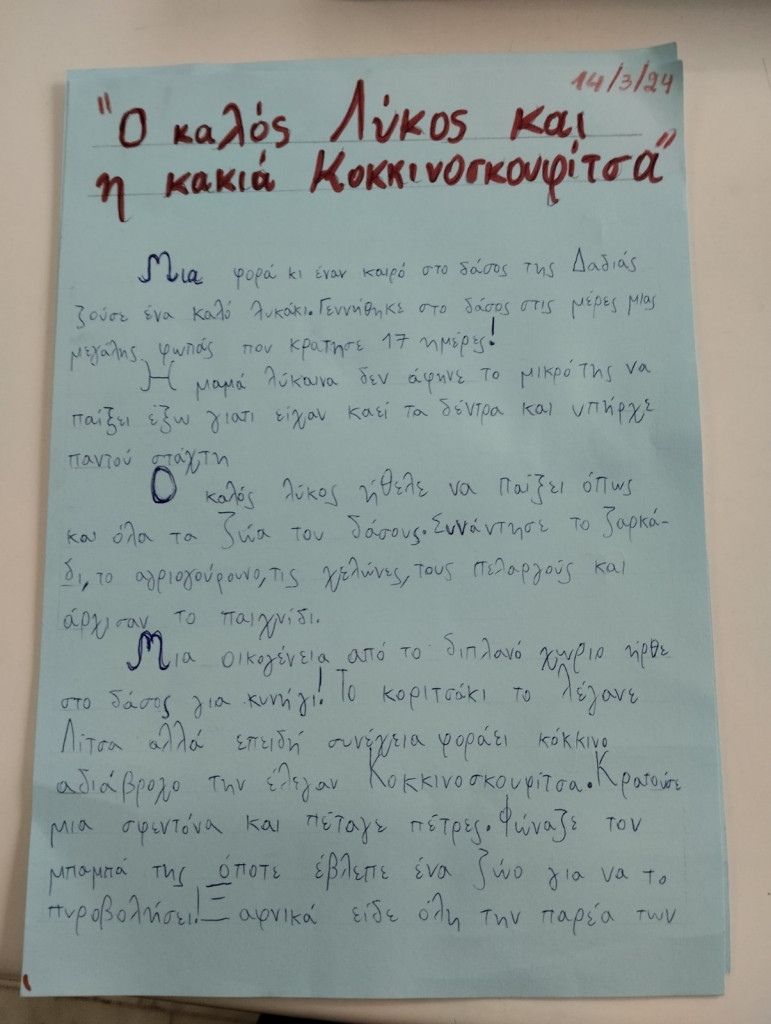 14/3/24
"Ο καλός Λύκος και
η κακιά Κοκκινοσκουφίτσα"
Μια φορά κι έναν καιρό στο δάσος της Δαδιάς
ζούσε ένα καλό λυκάκι. Γεννήθηκε στο δάσος στις μέρες μιας
μεγάλης φωτιάς που κράτησε 17 ημέρες!
Η μαμά λύκαινα δεν άφηνε το μικρό της να
παίξει έξω γιατι είχαν καεί τα δέντρα και υπήρχε
παντού στάχτη
Ο καλός λύκος ήθελε να παίξει όπως
και όλα τα ζώα του δάσους. Συνάντησε το ζαρκά-
δι, το αγριογούρουνο, τις χελώνες, τους πελαργούς και
άρχισαν το παιχνίδι.
Μια οικογένεια από το διπλανό χωριο ήρθε
στο δάσος για κυνήγι! Το κοριτσάκι το λέγανε
Λίτσα αλλά επειδή συνέχεια φοράει κόκκινο
αδιάβροχο την έλεγαν Κοκκινοσκουφίτσα. Κρατούσε
μια σφεντόνα και πέταγε πέτρες. Φώναζε τον
μπαμπά της όποτε έβλεπε ένα ζώο για να το
πυροβολήσει! Ξαφνικά είδε όλη την παρέα των